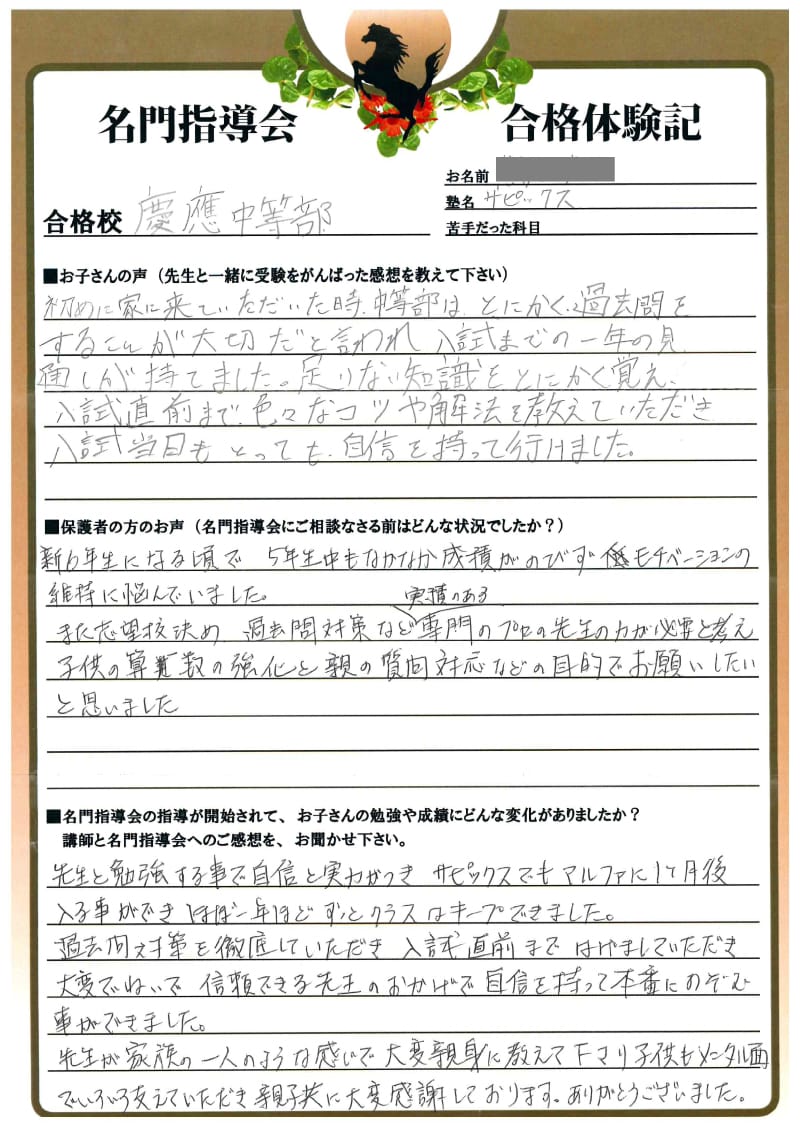 名門指導会
合格体験記
お名前
塾名 サピックス
合格校 慶應中等部
苦手だった科目
■お子さんの声（先生と一緒に受験をがんばった感想を教えて下さい）
初めに家に来ていただいた時、中等部は、とにかく、過去問を
することが大切だと言われ、入試までの一年の見
通しが持てました。足りない知識をとにかく覚え、
入試直前まで、色々なコツや解法を教えていただき
入試当日も とっても、自信を持って行けました。
■保護者の方のお声（名門指導会にご相談なさる前はどんな状況でしたか？）
新6年生になる頃で 5年生中もなかなか成積がのびず モチベーションの
維持に悩んでいました。
実積のある
また志望校決め、過去問対策など専門のプロの先生の力が必要と考え
子供の算数の強化と親の質問対応などの目的でお願いしたい
と思いました
■名門指導会の指導が開始されて、お子さんの勉強や成績にどんな変化がありましたか？
講師と名門指導会へのご感想を、お聞かせ下さい。
先生と勉強する事で自信と実力がつき サピックスでもアルファに1ヶ月後
入る事ができ ほぼ一年ほどずっとクラスはキープできました。
過去問対策を徹底していただき 入試直前まで はげましていただき
大変でねいで 信頼できる先生のおかげで自信を持って本番にのぞむ
事ができました。
先生が家族の一人のような感じで大変親身に教えて下さり子供もメンタル面
でいろいろ支えていただき親子共に大変感謝しております。ありがとうございました。